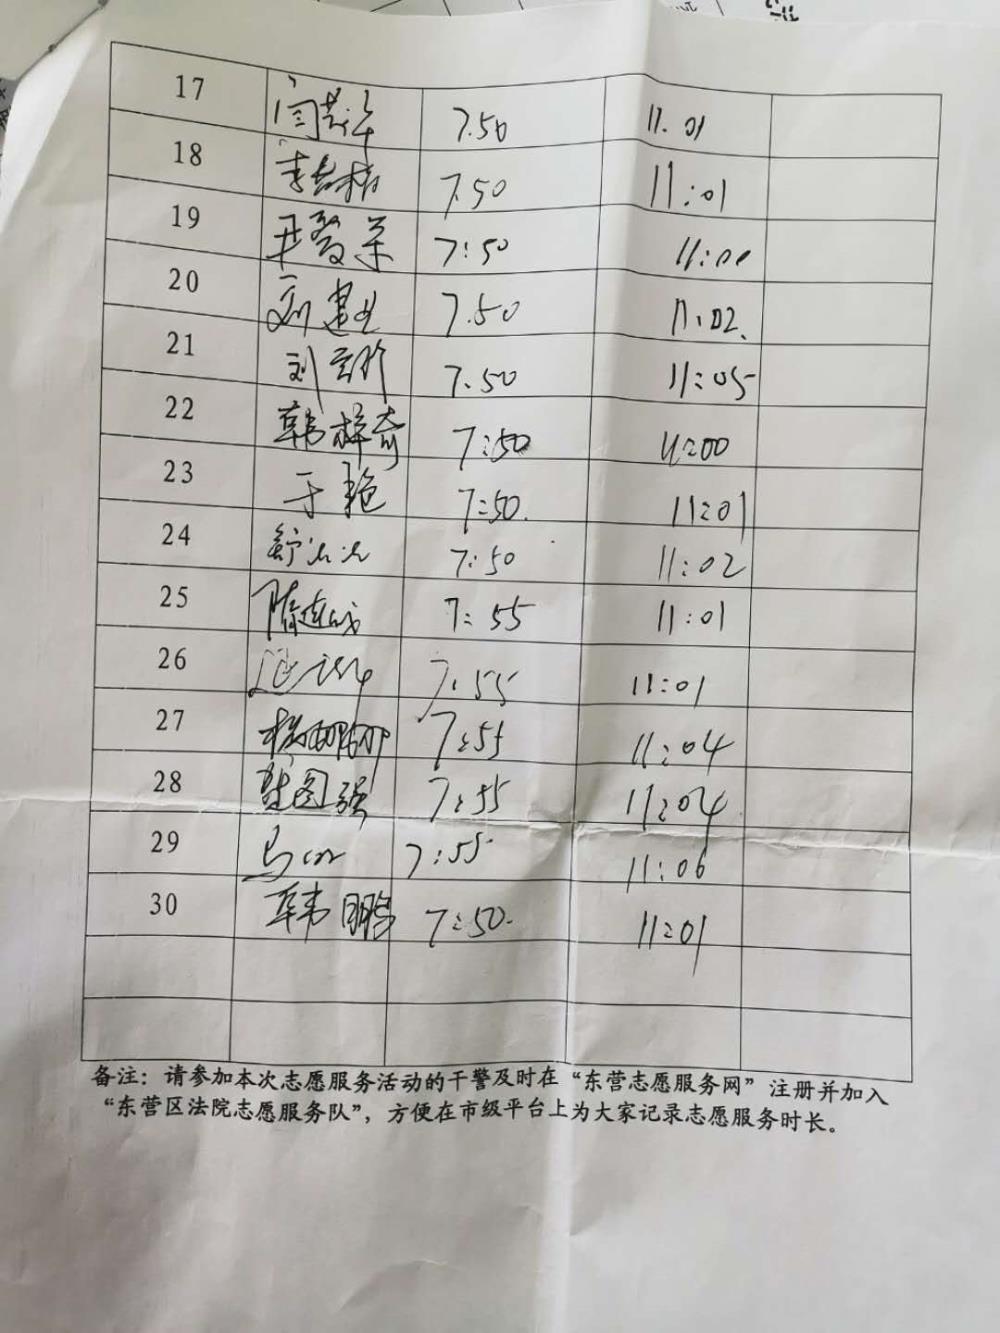 17 7.50 11.01
18 7.50 11:01
19 7:50 11:00
20 刘建 7.50 11.02.
21 刘 7.50 11:05
22 韩梓奇 7:50 11:00
23 于艳 7:50. 11:01
24 7:50 11:02
25 陈连成 7:55 11:01
26 7:55 11:01
27 7:55 11:04
28 国强 7:55 11:04
29 马 7:55 11:06
30 韩鹏 7:50. 11:01
备注：请参加本次志愿服务活动的干警及时在“东营志愿服务网”注册并加入
“东营区法院志愿服务队”，方便在市级平台上为大家记录志愿服务时长。